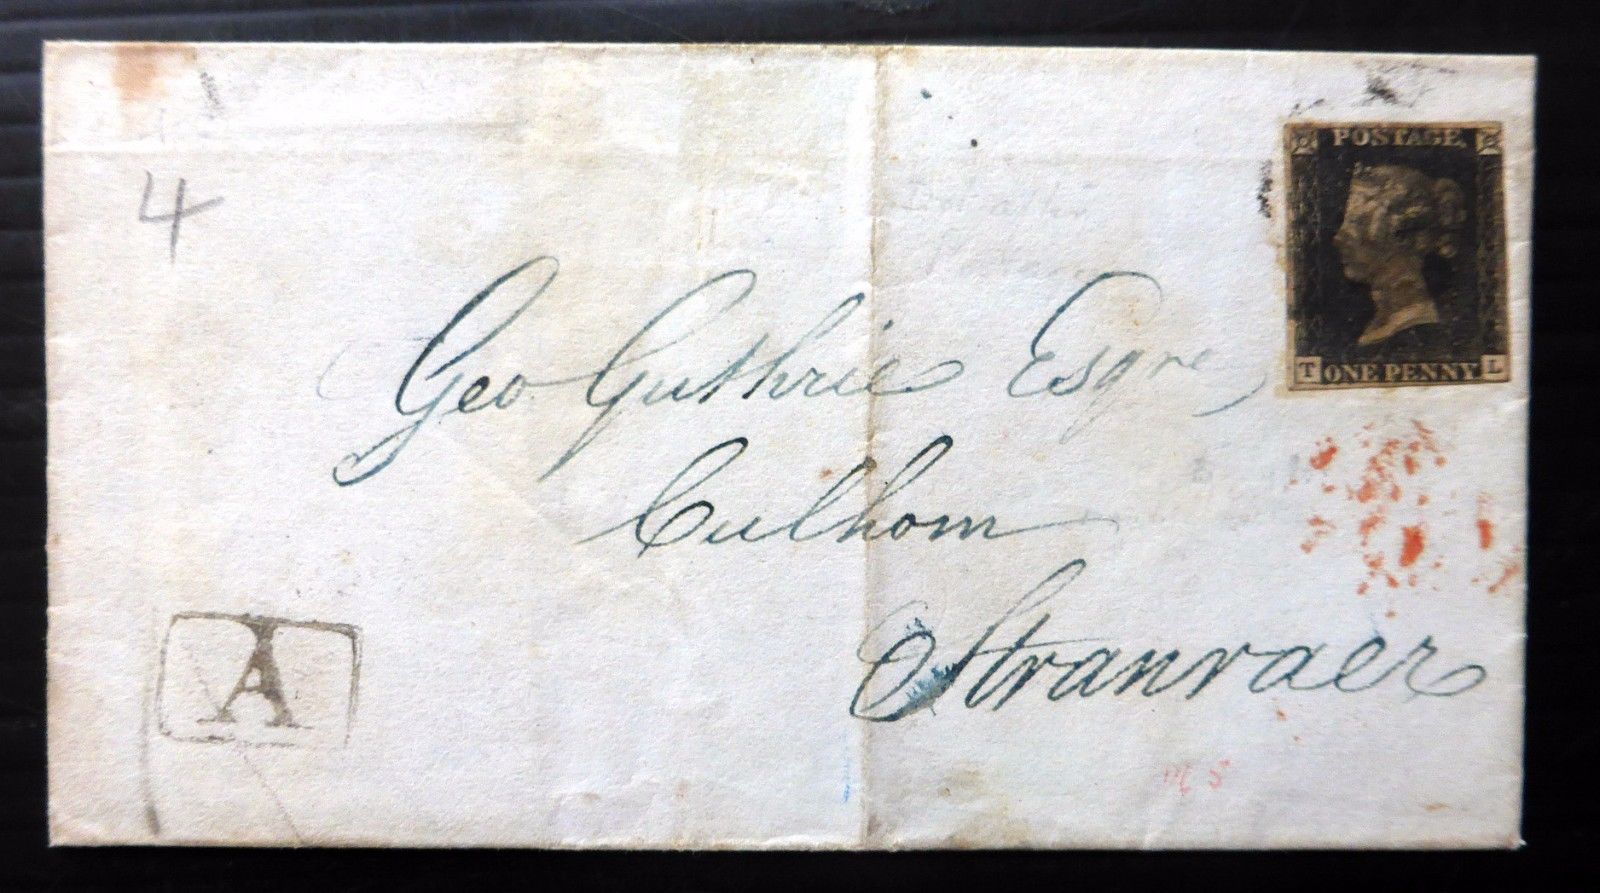 POSTAGE
4
Geo Guthrie Esqre
T ONE PENNY L
Culhom
Stranraer
A